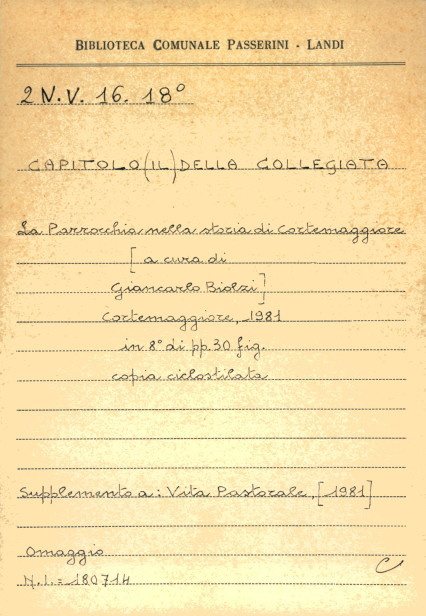 BIBLIOTECA COMUNALE PASSERINI - LANDI
2 N.V. 16. 18°
CAPITOLO (IL) DELLA COLLEGIATA
La Parrocchia nella storia di Cortemaggiore
[a cura di
Giancarlo Biolzi]
Cortemaggiore, 1981
in 8° di pp. 30 fig.
copia ciclostilata
Supplemento a: Vita Pastorale, [1981]
Omaggio
N.I. = 180714
C